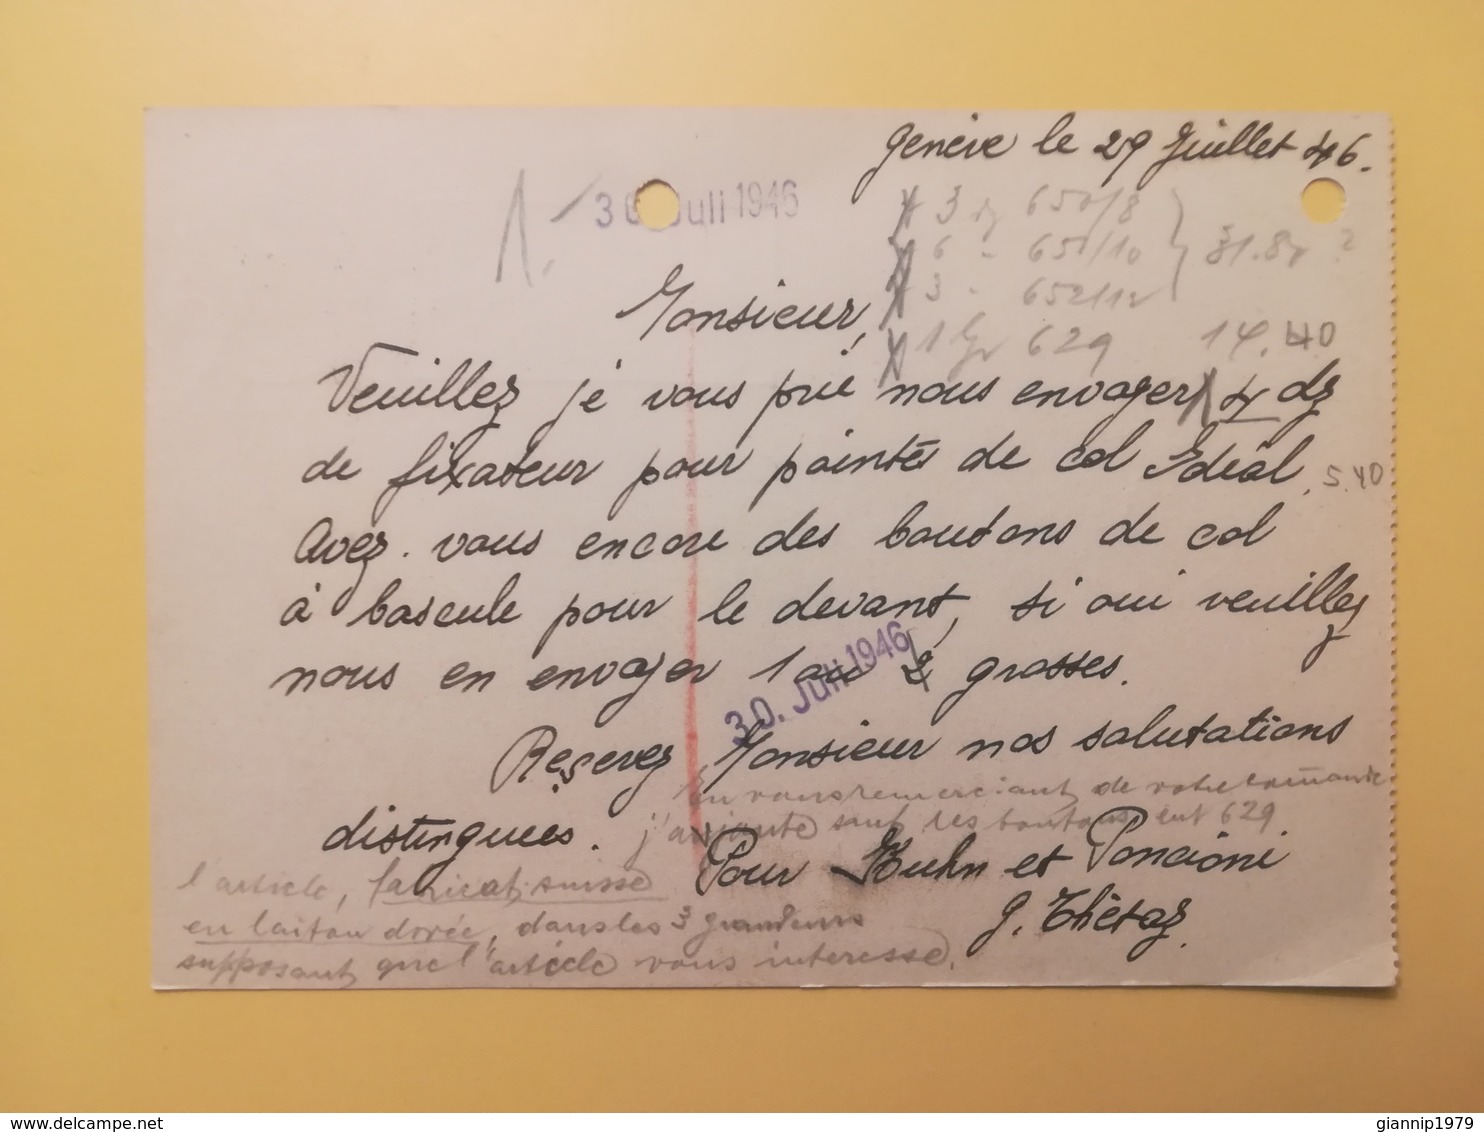 Genève le 29 Juillet 46.
1.-
30. Juli 1946
3 dz 650/8
6 - 651/10
3 - 652/12
31.80 ?
1 Gr 629 14.40
Monsieur,
Veuillez je vous prie nous envoyer 4 dz
de fixateur pour pointes de col Idéal. 5.40
Avez-vous encore des boutons de col
à bascule pour le devant, si oui veuillez
nous en envoyer 1 ou 2 grosses.
30. Juli 1946
Recevez Monsieur nos salutations
distinguées.
Pour Kuhn et Poncioni
G. Thétaz
en vous remerciant de votre commande
j'ajoute sauf les boutons 629
l'article, fabricat. suisse
en laiton dorée, dans les 3 grandeurs
supposant que l'article vous interesse.
giannip1979